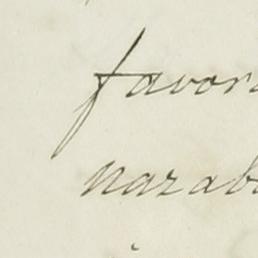 favor
narab